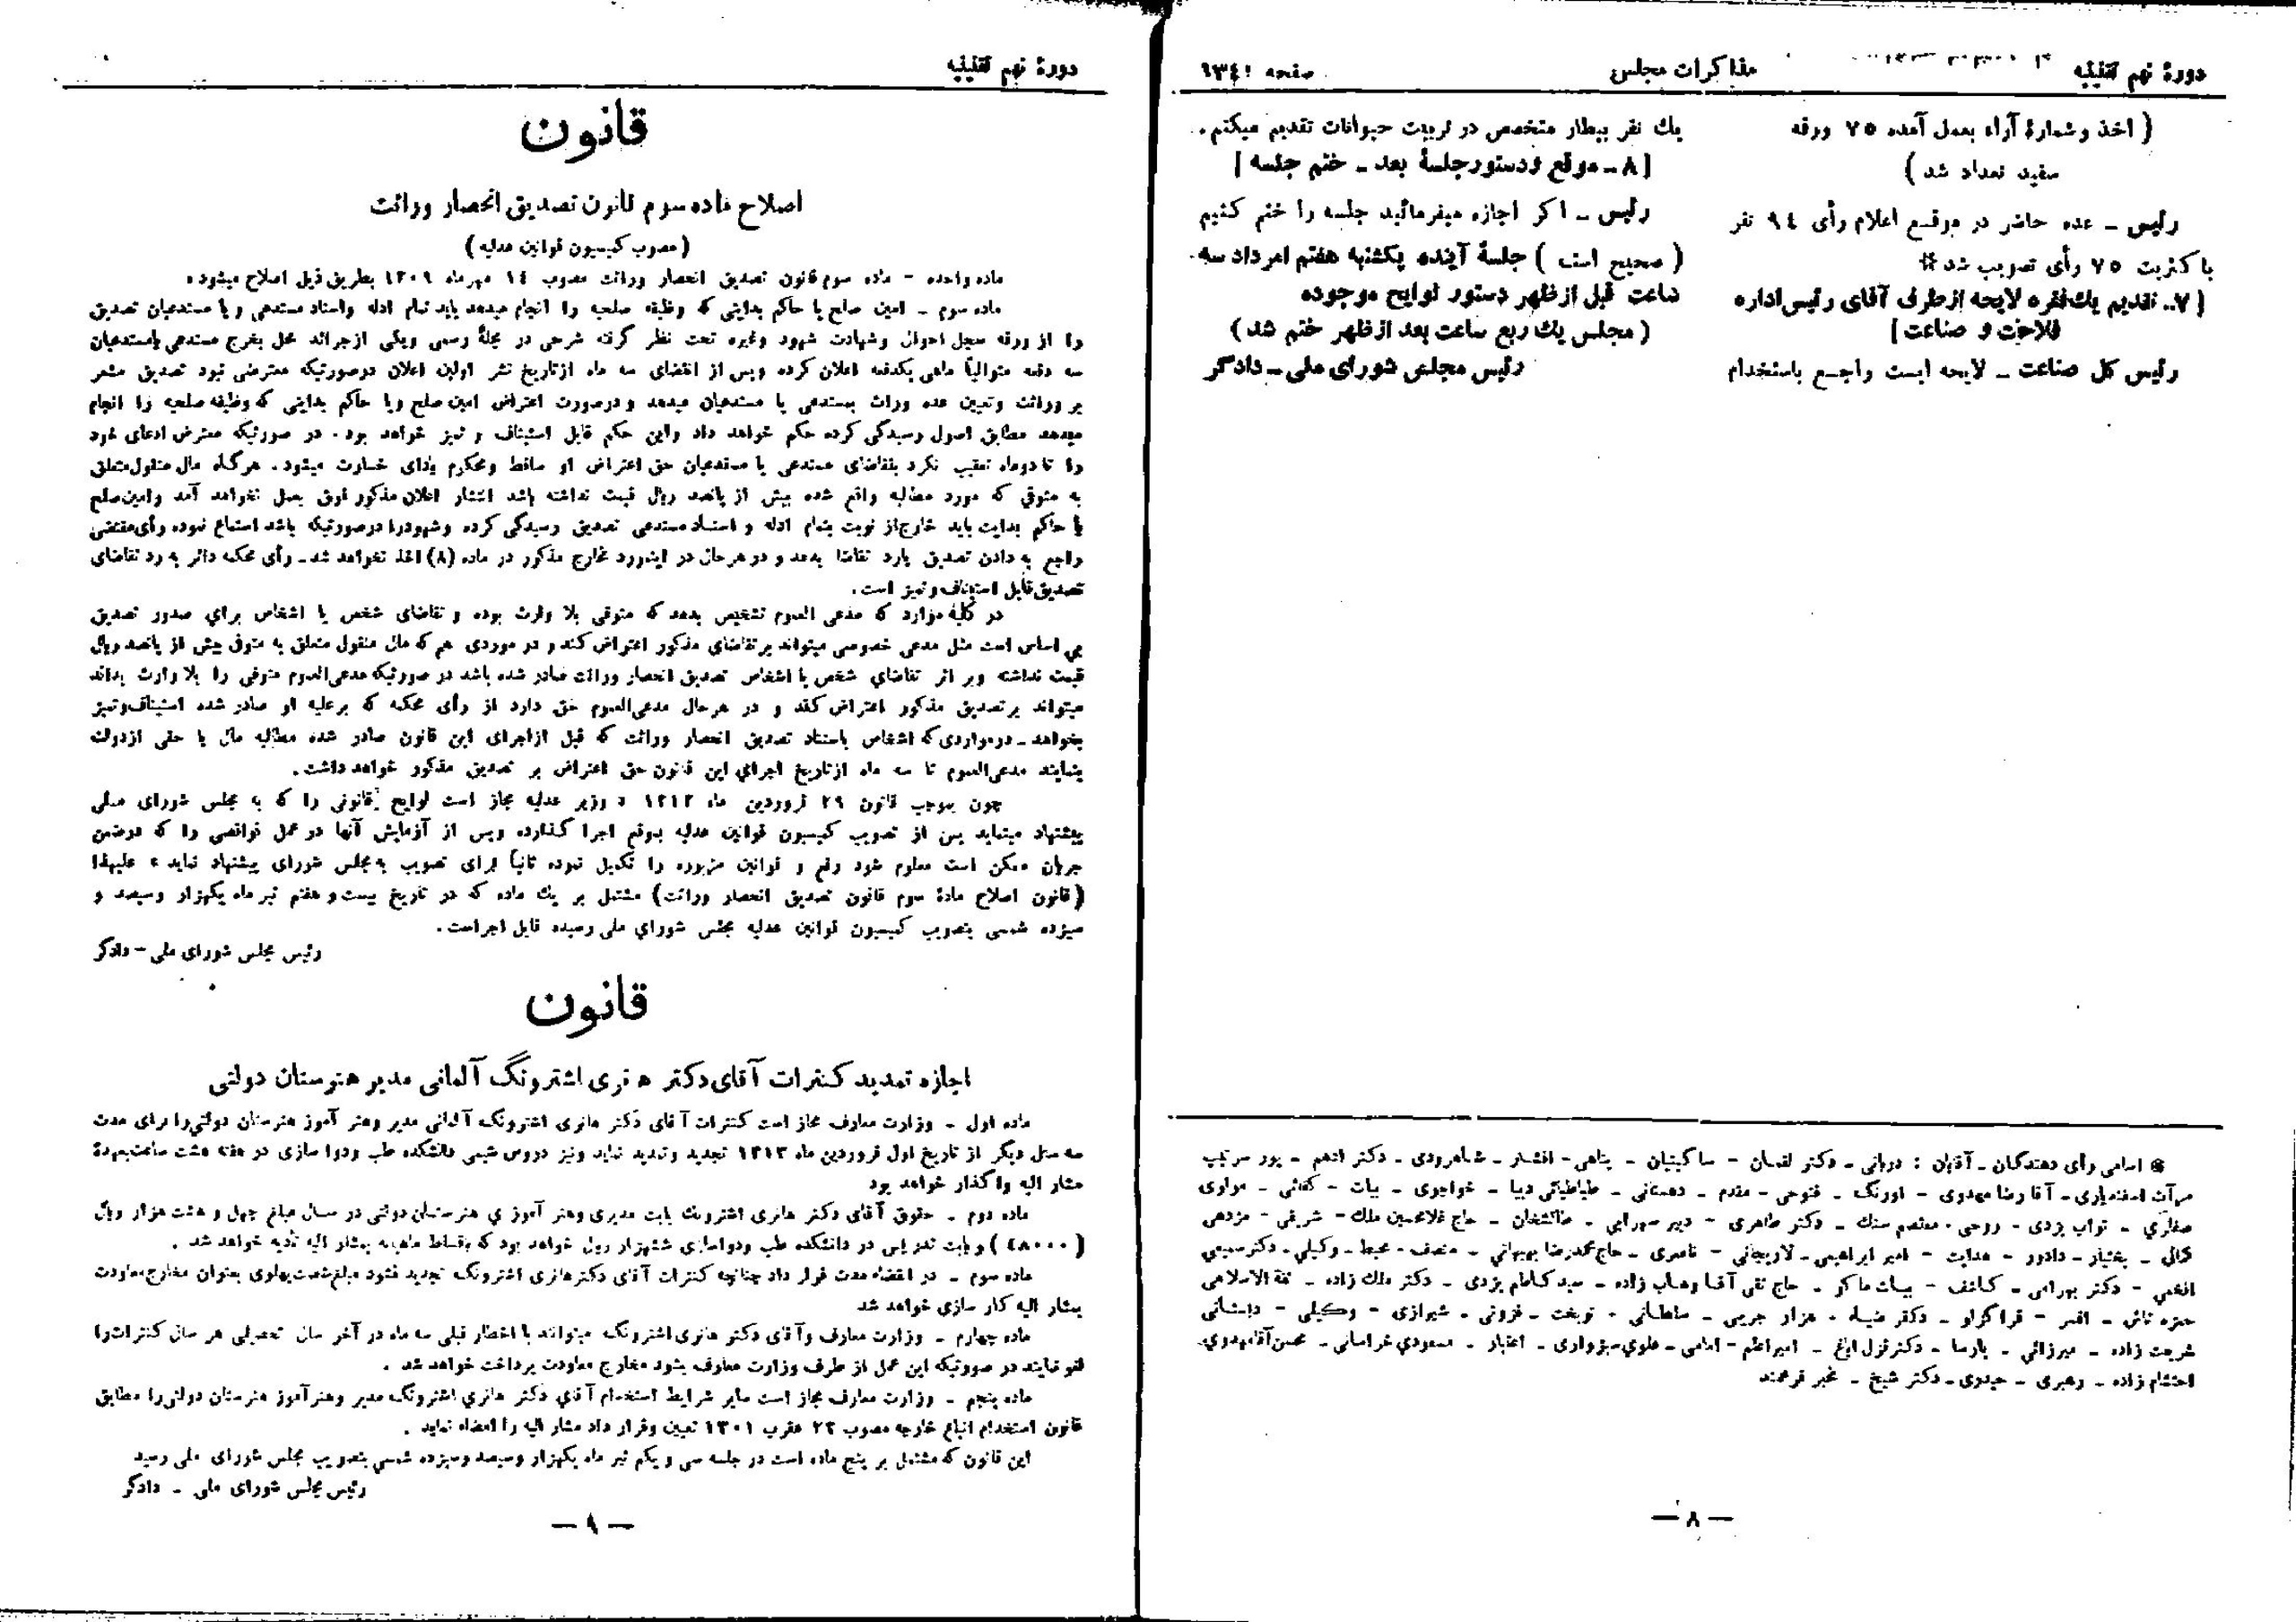 دورهٔ نهم تقنینیه
مذاکرات مجلس
صفحه ۹۳۴۱
( اخذ و شمارهٔ آراء بعمل آمده ۷۵ ورقه
سفید تعداد شد )
رئیس ـ عده حاضر در موقع اعلام رأی ۹٤ نفر
با کثریت ۷۵ رأی تصویب شد※
[ ۷ـ تقدیم یك فقره لایحه از طرف آقای رئیس اداره
فلاحت و صناعت ]
رئیس کل صناعت ـ لایحه ایست راجع باستخدام
یك نفر بیطار متخصص در تربیت حیوانات تقدیم میکنم .
[ ۸ ـ موقع ودستور جلسهٔ بعد ـ ختم جلسه ]
رئیس ـ اگر اجازه میفرمائید جلسه را ختم کنیم
( صحیح است ) جلسهٔ آینده یکشنبه هفتم امرداد سه
ساعت قبل از ظهر دستور لوایح موجوده
( مجلس یك ربع ساعت بعد از ظهر ختم شد )
رئیس مجلس شورای ملی ـ دادگر
※ اسامی رأی دهندگان ـ آقایان : دربانی ـ دکتر لقمان ـ ساکینیان ـ پناهی ـ افشار ـ شاهرودی ـ دکتر ادهم ـ پور سرتیپ
مرآت اسفندیاری ـ آقا رضا مهدوی ـ اورنگ ـ فتوحی ـ مقدم ـ دهستانی ـ طباطبائی دیبا ـ خواجوی ـ بیات ـ کفائی ـ مولوی
صفاری ـ نواب یزدی ـ روحی ـ معتصم سنك ـ دکتر طاهری ـ دبیر سهرابی ـ طالشخان ـ حاج غلامحسین ملك ـ شریفی ـ مژدهی
کمالی ـ بختیار ـ دادور ـ هدایت ـ امیر ابراهیمی ـ لاریجانی ـ ناصری ـ حاج محمد رضا بهبهانی ـ منصف ـ محیط ـ وکیلی ـ دکتر سمیعی
افخمی ـ دکتر بهرامی ـ کاشف ـ بیات ماکو ـ حاج تقی آقا وهاب زاده ـ سید کاظم یزدی ـ دکتر ملك زاده ـ ثقة الاسلامی
حمزه تاش ـ افسر ـ قراگزلو ـ دکتر ضیاء ـ هزار جریبی ـ سلطانی ـ نوبخت ـ قزونی ـ شیرازی ـ وکیلی ـ دبستانی
شریعت زاده ـ میرزائی ـ پارسا ـ دکتر قزل ایاغ ـ امیر اعظم ـ امامی ـ علوی سبزواری ـ اعتبار ـ مسعودی خراسانی ـ محسن آقا مهدوی
احتشام زاده ـ رهبری ـ حیدری ـ دکتر شیخ ـ مخبر فرهمند
— ۸ —
دورهٔ نهم تقنینیه
قانون
اصلاح ماده سوم قانون تصدیق انحصار وراثت
(مصوب کمیسیون قوانین عدلیه)
ماده واحده - ماده سوم قانون تصدیق انحصار وراثت مصوب ۱٤ مهر ماه ۱۳۰۹ بطریق ذیل اصلاح میشود :
ماده سوم ـ امین صلح یا حاکم بدایتی که وظیفه صلحیه را انجام میدهد باید تمام ادله واسناد مستدعی و یا مستدعیان تصدیق
را از ورقه سجل احوال وشهادت شهود وغیره تحت نظر گرفته شرحی در مجلهٔ رسمی ویکی از جرائد محل بخرج مستدعی یا مستدعیان
سه دفعه متوالیاً ماهی یکدفعه اعلان کرده وپس از انقضای سه ماه از تاریخ نشر اولین اعلان درصورتیکه معترضی نبود تصدیق مشعر
بر وراثت وتعیین عده وراث بمستدعی یا مستدعیان میدهد و درصورت اعتراض امین صلح ویا حاکم بدایتی که وظیفه صلحیه را انجام
میدهد مطابق اصول رسیدگی کرده حکم خواهد داد واین حکم قابل استیناف و تمیز خواهد بود . در صورتیکه معترض ادعای خود
را تا دوماه تعقیب نکرد بتقاضای مستدعی یا مستدعیان حق اعتراض او ساقط ومحکوم بادای خسارت میشود . هر گاه مال منقول متعلق
به متوفی که مورد مطالبه واقع شده بیش از پانصد ریال قیمت نداشته باشد انتشار اعلان مذکور فوق بعمل نخواهد آمد وامین صلح
یا حاکم بدایت باید خارج از نوبت بتمام ادله و اسناد مستدعی تصدیق رسیدگی کرده وشهود را درصورتیکه باشد استماع نموده رأی مقتضی
راجع به دادن تصدیق یا رد تقاضا بدهد و در هر حال در اینمورد مخارج مذکور در ماده (۸) اخذ نخواهد شد ـ رأی محکمه دائر به رد تقاضای
تصدیق قابل استیناف و تمیز است .
در کلیهٔ موارد که مدعی العموم تشخیص بدهد که متوفی بلا وارث بوده و تقاضای شخص یا اشخاص برای صدور تصدیق
بی اساس است مثل مدعی خصوصی میتواند بر تقاضای مذکور اعتراض کند و در موردی هم که مال منقول متعلق به متوفی بیش از پانصد ریال
قیمت نداشته وبر اثر تقاضای شخص یا اشخاص تصدیق انحصار وراثت صادر شده باشد در صورتیکه مدعی العموم متوفی را بلا وارث بداند
میتواند بر تصدیق مذکور اعتراض کند و در هر حال مدعی العموم حق دارد از رأی محکمه که برعلیه او صادر شده استیناف وتمیز
بخواهد ـ در مواردی که اشخاص باستناد تصدیق انحصار وراثت که قبل از اجرای این قانون صادر شده مطالبه مال یا حقی از دولت
بنمایند مدعی العموم تا سه ماه از تاریخ اجرای این قانون حق اعتراض بر تصدیق مذکور خواهد داشت .
چون بموجب قانون ۲۹ فروردین ماه ۱۳۱۳ « وزیر عدلیه مجاز است لوایح قانونی را که به مجلس شورای ملی
پیشنهاد مینماید پس از تصویب کمیسیون قوانین عدلیه بموقع اجرا گذارده وپس از آزمایش آنها در عمل نواقصی را که در ضمن
جریان ممکن است معلوم شود رفع و قوانین مزبوره را تکمیل نموده ثانیاً برای تصویب به مجلس شورای پیشنهاد نماید » علیهذا
(قانون اصلاح مادهٔ سوم قانون تصدیق انحصار وراثت) مشتمل بر یك ماده که در تاریخ بیست و هفتم تیر ماه یکهزار وسیصد و
سیزده شمسی بتصویب کمیسیون قوانین عدلیه مجلس شورای ملی رسیده قابل اجراست .
رئیس مجلس شورای ملی - دادگر
قانون
اجازه تمدید کنترات آقای دکتر هانری اشترونگ آلمانی مدیر هنرستان دولتی
ماده اول ـ وزارت معارف مجاز است کنترات آقای دکتر هانری اشترونگ آلمانی مدیر وهنر آموز هنرستان دولتی را برای مدت
سه سال دیگر از تاریخ اول فروردین ماه ۱۳۱۳ تجدید وتمدید نماید ونیز دروس شیمی دانشکده طب ودوا سازی در هفته هشت ساعت بعهدهٔ
مشار الیه واگذار خواهد بود
ماده دوم ـ حقوق آقای دکتر هانری اشترونگ بابت مدیری وهنر آموزی هنرستان دولتی در سال مبلغ چهل و هشت هزار ریال
(٤۸۰۰۰) و بابت تدریس در دانشکده طب ودواسازی ششهزار ریال خواهد بود که باقساط ماهیانه بمشار الیه تأدیه خواهد شد .
ماده سوم ـ در انقضاء مدت قرار داد چنانچه کنترات آقای دکتر هانری اشترونگ تجدید نشود مبلغ شصت پهلوی بعنوان مخارج معاودت
بمشار الیه کار سازی خواهد شد
ماده چهارم ـ وزارت معارف وآقای دکتر هانری اشترونگ میتوانند با اخطار قبلی سه ماه در آخر سال تحصیلی هر سال کنترات را
لغو نمایند در صورتیکه این عمل از طرف وزارت معارف بشود مخارج معاودت پرداخت خواهد شد .
ماده پنجم ـ وزارت معارف مجاز است سایر شرایط استخدام آقای دکتر هانری اشترونگ مدیر وهنر آموز هنرستان دولتی را مطابق
قانون استخدام اتباع خارجه مصوب ۲۳ عقرب ۱۳۰۱ تعیین وقرار داد مشار الیه را امضاء نماید .
این قانون که مشتمل بر پنج ماده است در جلسه سی و یکم تیر ماه یکهزار وسیصد وسیزده شمسی بتصویب مجلس شورای ملی رسید
رئیس مجلس شورای ملی ـ دادگر
— ۹ —